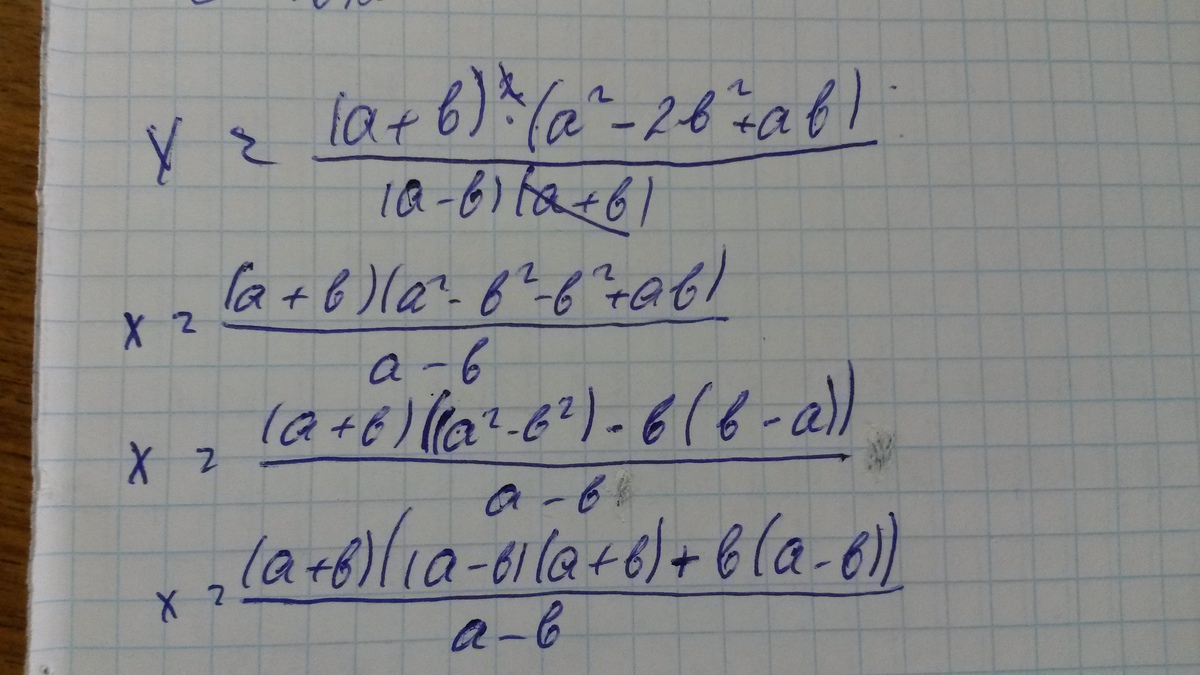 x = (a+b)^2·(a²-2b²+ab) / (a-b)(a+b)
x = (a+b)(a²-b²-b²+ab) / a-b
x = (a+b)((a²-b²)-b(b-a)) / a-b
x = (a+b)((a-b)(a+b)+b(a-b)) / a-b